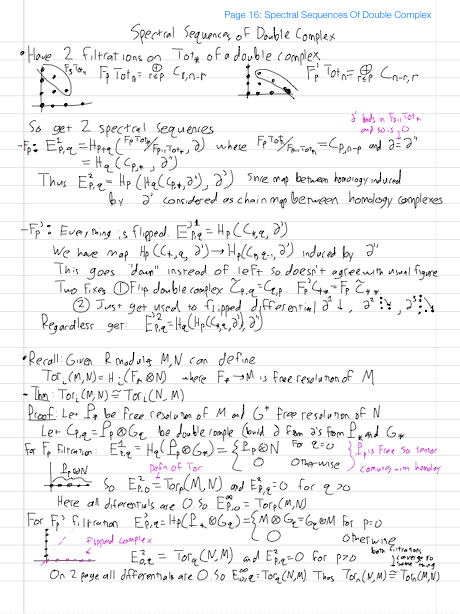 Page 16: Spectral Sequences Of Double Complex
Spectral Sequences of Double Complex
• Have 2 filtrations on Tot_* of a double complex
F_p Tot_n F_p Tot_n = ⊕_{r≤p} C_{r,n-r} F_p' Tot_n = ⊕_{r≤p} C_{n-r,r}
∂' lands in F_{p-1}Tot_n
and so is 0
So get 2 spectral sequences
-F_p: E^1_{p,q} = H_{p+q}(F_pTot_n/F_{p-1}Tot_n, ∂) where F_pTot_n/F_{p-1}Tot_n = C_{p,n-p} and ∂ = ∂''
= H_q(C_{p,*}, ∂'')
Thus E^2_{p,q} = H_p(H_q(C_{*,*}, ∂''), ∂') since map between homology induced
by ∂' considered as chain map between homology complexes
-F_p': Everything is flipped. E'^1_{p,q} = H_p(C_{*,q}, ∂')
We have map H_p(C_{*,q}, ∂') → H_p(C_{*,q-1}, ∂') induced by ∂''
This goes "down" instead of left so doesn't agree with usual figure
Two fixes ① Flip double complex C̃_{p,q} = C_{q,p}. F_p' C_{**} = F_p C̃_{**}
② Just get used to flipped differential ∂^1 ↓, ∂^2 ⋮↘, ∂^3 ⋮↘
Regardless get: E'^2_{p,q} = H_q(H_p(C_{*,*}, ∂'), ∂'')
• Recall: Given R modules M,N can define
Tor_i(M,N) = H_i(F_* ⊗ N) where F_* → M is free resolution of M
- Thm: Tor_i(M,N) ≅ Tor_i(N,M)
Proof: Let P_* be free resolution of M and G_* free resolution of N
Let C_{p,q} = P_p ⊗ G_q be double complex (build ∂ from ∂'s from P_* and G_*
For F_p Filtration: E^1_{p,q} = H_q(P_p ⊗ G_*) = { P_p ⊗ N For q=0
0 otherwise
} P_p is free so tensor
commutes with homology
P_p ⊗ N
Defn of Tor
So E^2_{p,0} = Tor_p(M,N) and E^2_{p,q} = 0 for q>0
Here all differentials are 0. So E^∞_{p,0} = Tor_p(M,N)
For F_p' Filtration E^1_{p,q} = H_p(P_* ⊗ G_q) = { M ⊗ G_q = G_q ⊗ M for p=0
0 otherwise
Flipped complex
E^2_{0,q} = Tor_q(N,M) and E^2_{p,q} = 0 for p>0
both filtrations
converge to
same thing
On 2 page all differentials are 0. So E^∞_{0,q} = Tor_q(N,M) Thus Tor_n(N,M) ≅ Tor_n(M,N)